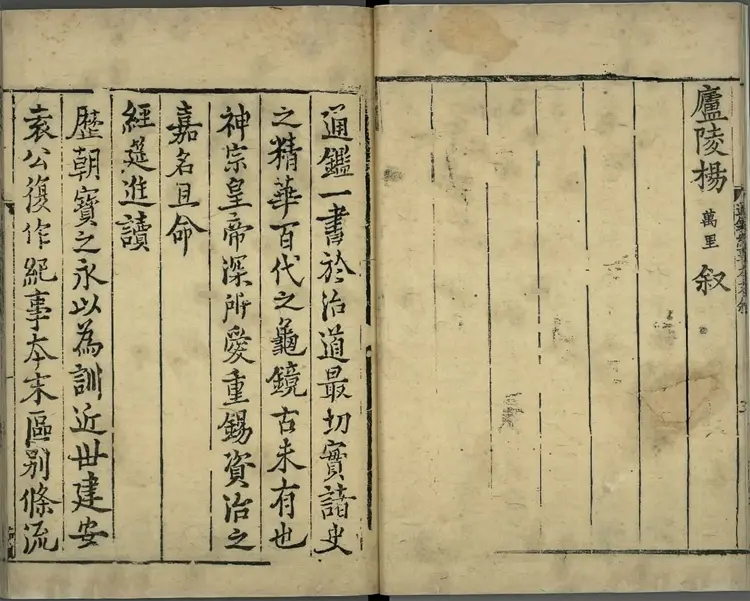 廬陵楊萬里叙
通鑑一書於治道最切實諸史
之精華百代之龜鏡古未有也
神宗皇帝深所愛重錫資治之
嘉名且命
經筵進讀
歷朝寶之永以為訓近世建安
袁公復作紀事本末區別條流